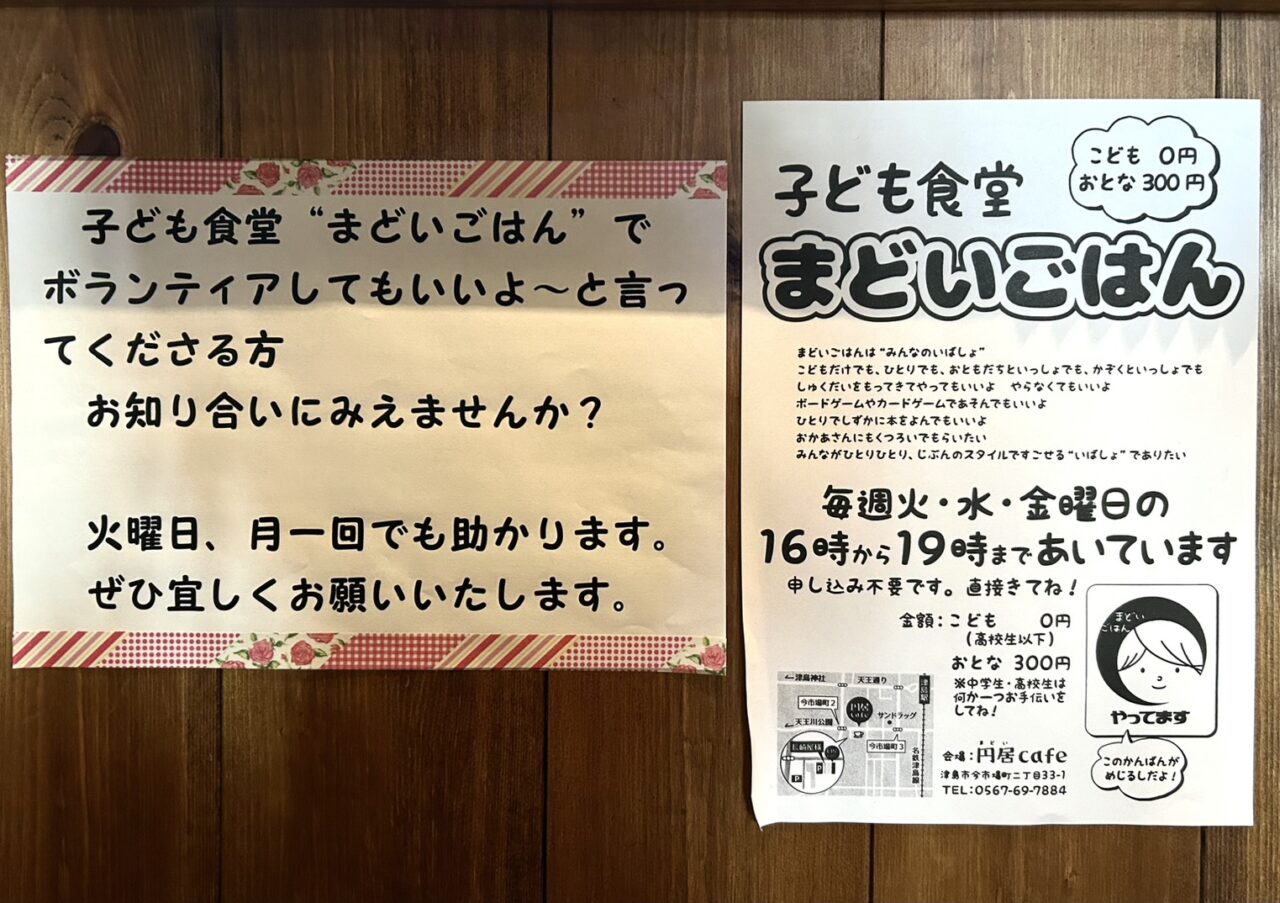 子ども食堂“まどいごはん”で
ボランティアしてもいいよ～と言っ
てくださる方
お知り合いにみえませんか？
火曜日、月一回でも助かります。
ぜひ宜しくお願いいたします。
こども 0円
おとな 300円
子ども食堂
まどいごはん
まどいごはんは“みんなのいばしょ”
こどもだけでも、ひとりでも、おともだちといっしょでも、かぞくといっしょでも
しゅくだいをもってきてやってもいいよ やらなくてもいいよ
ボードゲームやカードゲームであそんでもいいよ
ひとりでしずかに本をよんでもいいよ
おかあさんにもくつろいでもらいたい
みんながひとりひとり、じぶんのスタイルですごせる“いばしょ”でありたい
毎週火・水・金曜日の
16時から19時まであいています
申し込み不要です。直接きてね！
金額：こども 0円
(高校生以下)
おとな 300円
※中学生・高校生は
何か一つお手伝いを
してね！
まどい
ごはん
やってます
このかんばんが
めじるしだよ！
←津島神社
天王通り
津島駅
今市場町2
円居
cafe
サンドラッグ
←天王川公園
今市場町3
名鉄津島線
P
P
まどい
会場：円居cafe
津島市今市場町二丁目33-1
TEL：0567-69-7884